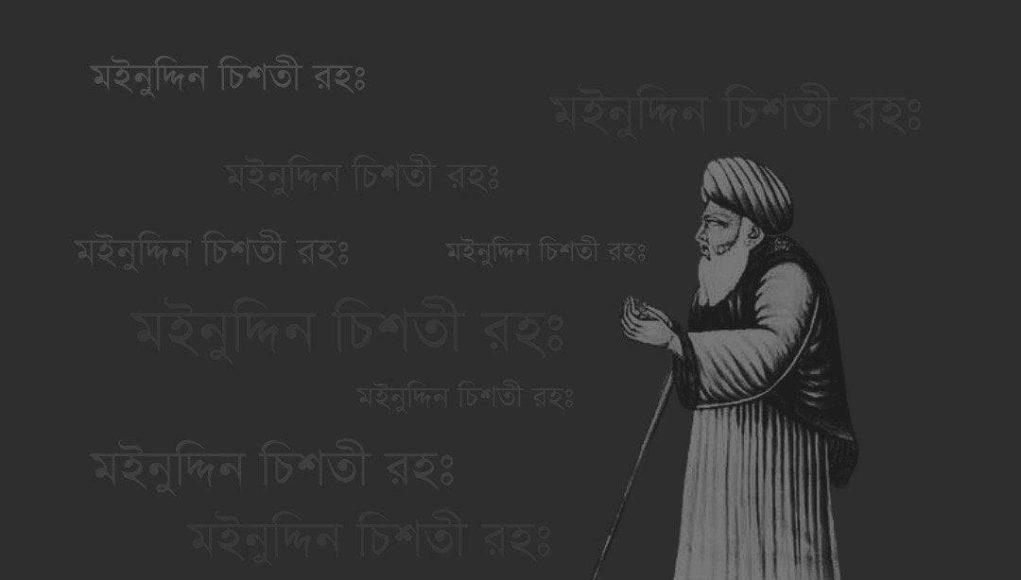 মইনুদ্দিন চিশতী রহঃ
মইনুদ্দিন চিশতী রহঃ
মইনুদ্দিন চিশতী রহঃ
মইনুদ্দিন চিশতী রহঃ
মইনুদ্দিন চিশতী রহঃ
মইনুদ্দিন চিশতী রহঃ
মইনুদ্দিন চিশতী রহঃ
মইনুদ্দিন চিশতী রহঃ
মইনুদ্দিন চিশতী রহঃ